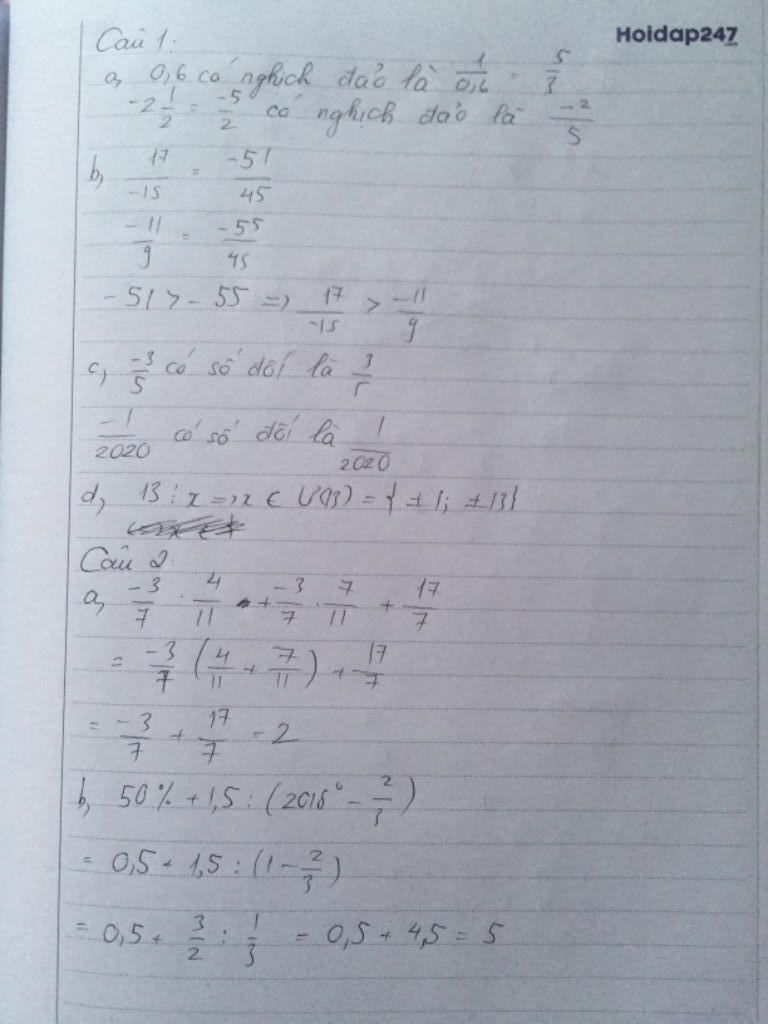 Hoidap247
Câu 1:
a, 0,6 có nghịch đảo là 1/0,6 = 5/3
-2 1/2 = -5/2 có nghịch đảo là -2/5
b, 17/-15 = -51/45
-11/9 = -55/45
-51 > -55 => 17/-15 > -11/9
c, -3/5 có số đối là 3/5
-1/2020 có số đối là 1/2020
d, 13 ⋮ x => x ∈ Ư(13) = { ±1; ±13}
Câu 2.
a, -3/7 . 4/11 + -3/7 . 7/11 + 17/7
= -3/7 (4/11 + 7/11) + 17/7
= -3/7 + 17/7 = 2
b, 50% + 1,5 : (2018⁰ - 2/3)
= 0,5 + 1,5 : (1 - 2/3)
= 0,5 + 3/2 : 1/3 = 0,5 + 4,5 = 5